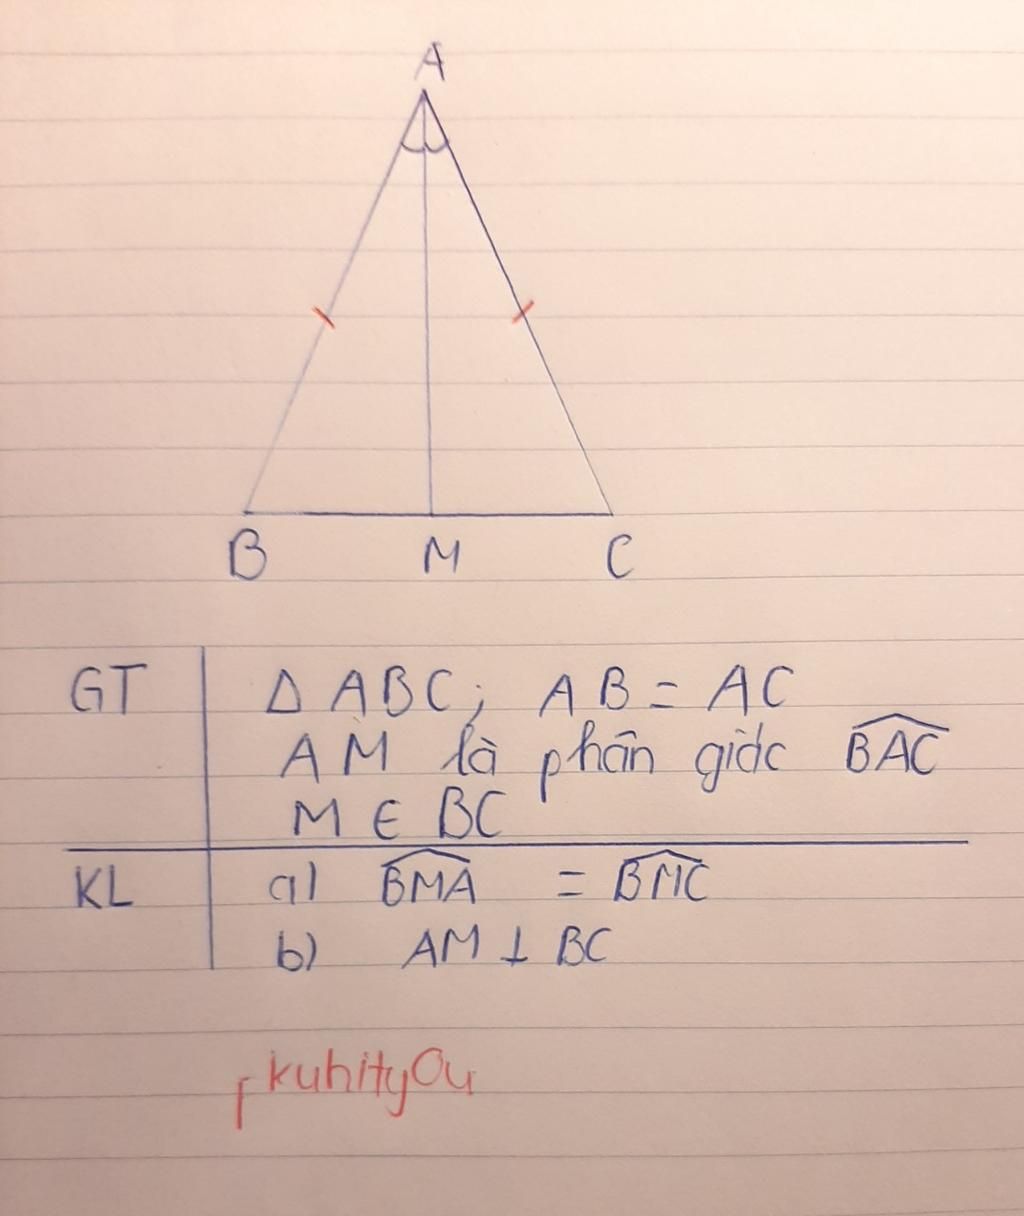 A
B M C
GT Δ ABC; AB = AC
AM là phân giác \widehat{BAC}
M ∈ BC
KL a) \widehat{BMA} = \widehat{BMC}
b) AM ⊥ BC
kuhityOu